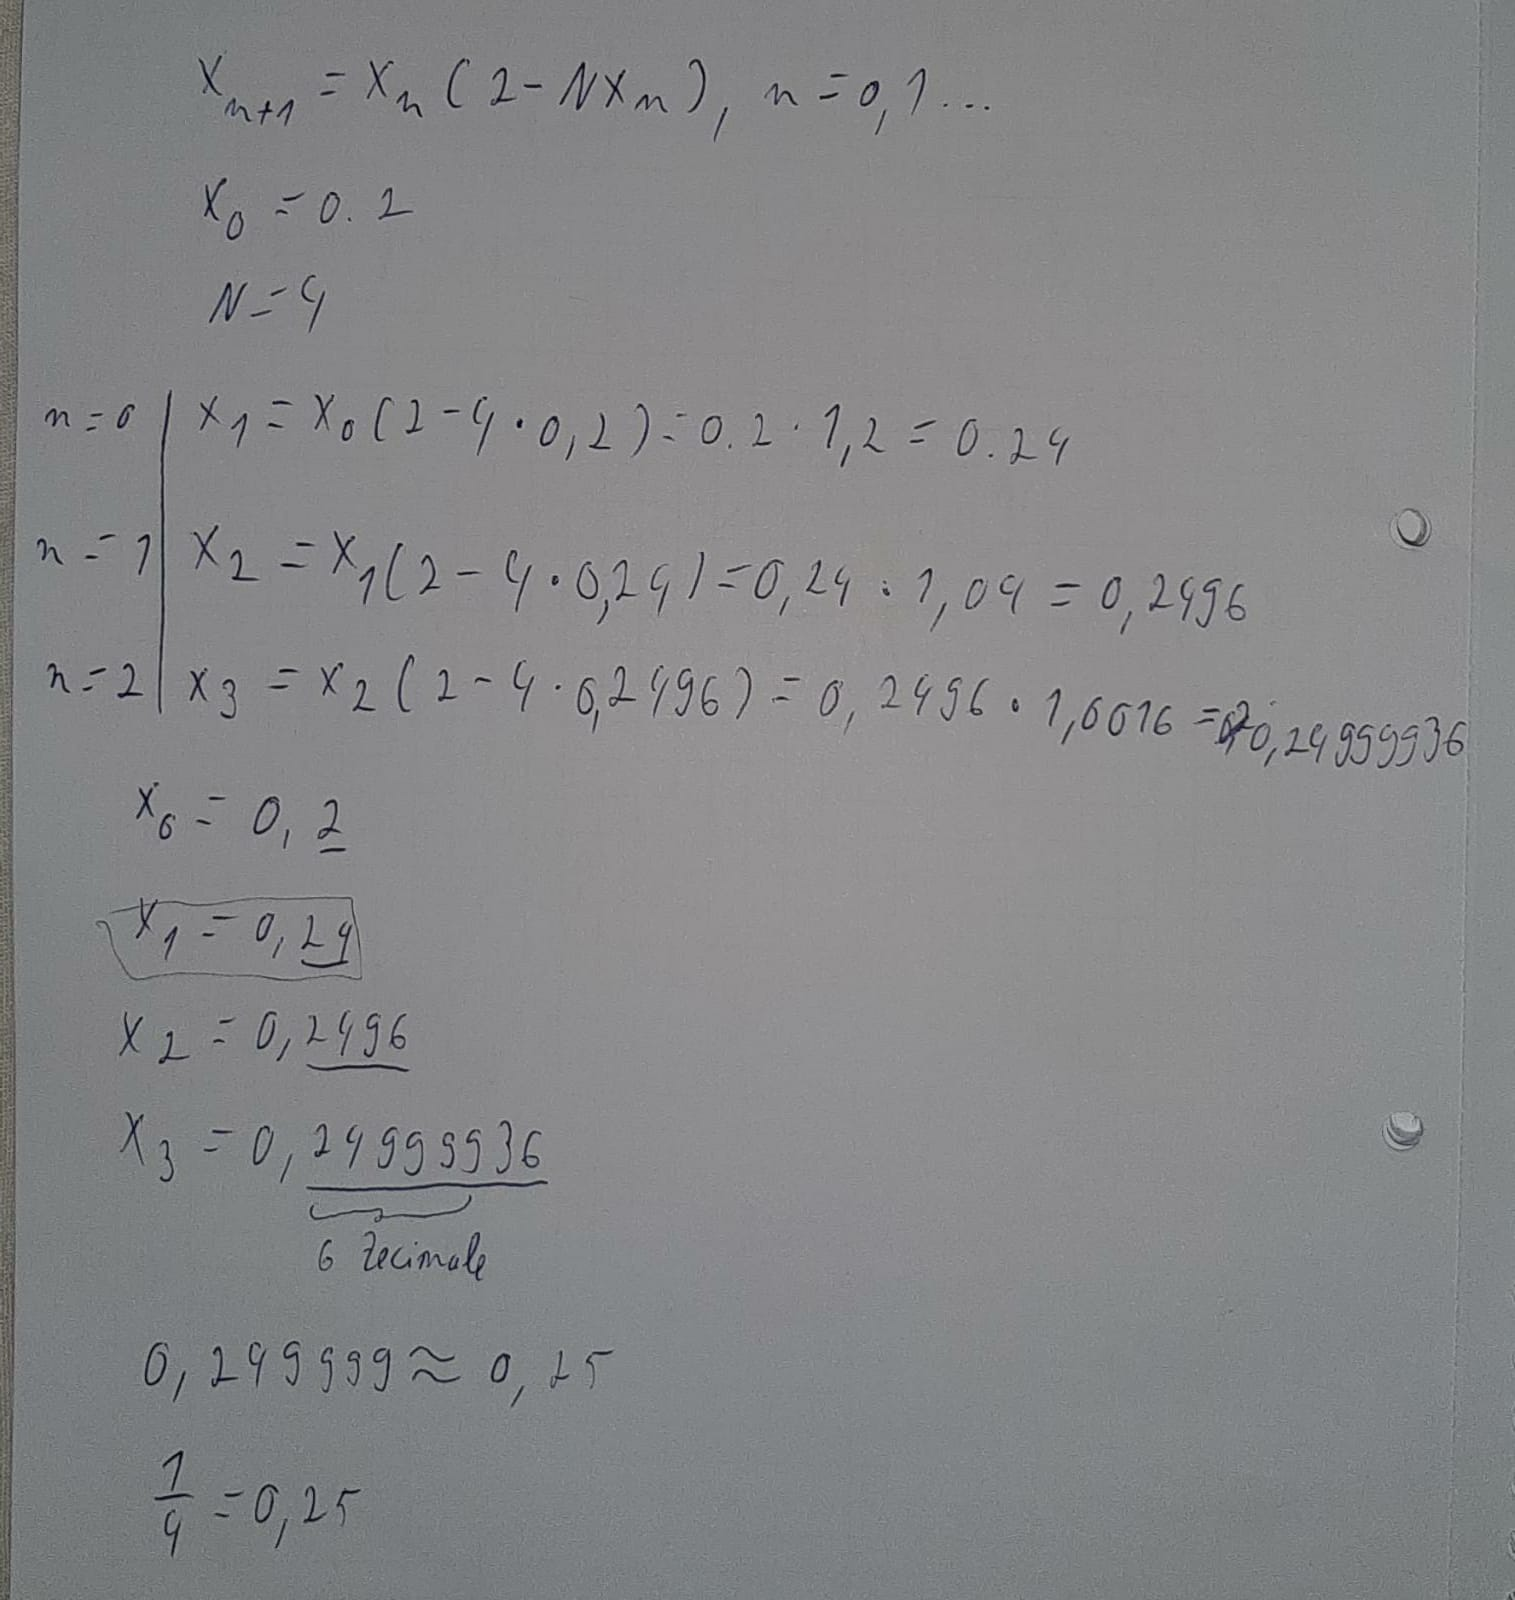 x_{n+1} = x_n ( 2 - N x_n ), n = 0,1...
x_0 = 0.2
N = 4
n = 0 | x_1 = x_0 ( 2 - 4 · 0,2 ) = 0.2 · 1,2 = 0.24
n = 1 | x_2 = x_1 ( 2 - 4 · 0,24 ) = 0,24 · 1,04 = 0,2496
n = 2 | x_3 = x_2 ( 2 - 4 · 0,2496 ) = 0,2496 · 1,0016 = 0,24999936
x_0 = 0,2
x_1 = 0,24
x_2 = 0,2496
x_3 = 0,24999936
6 zecimale
0,249999 ≈ 0,25
1/4 = 0,25